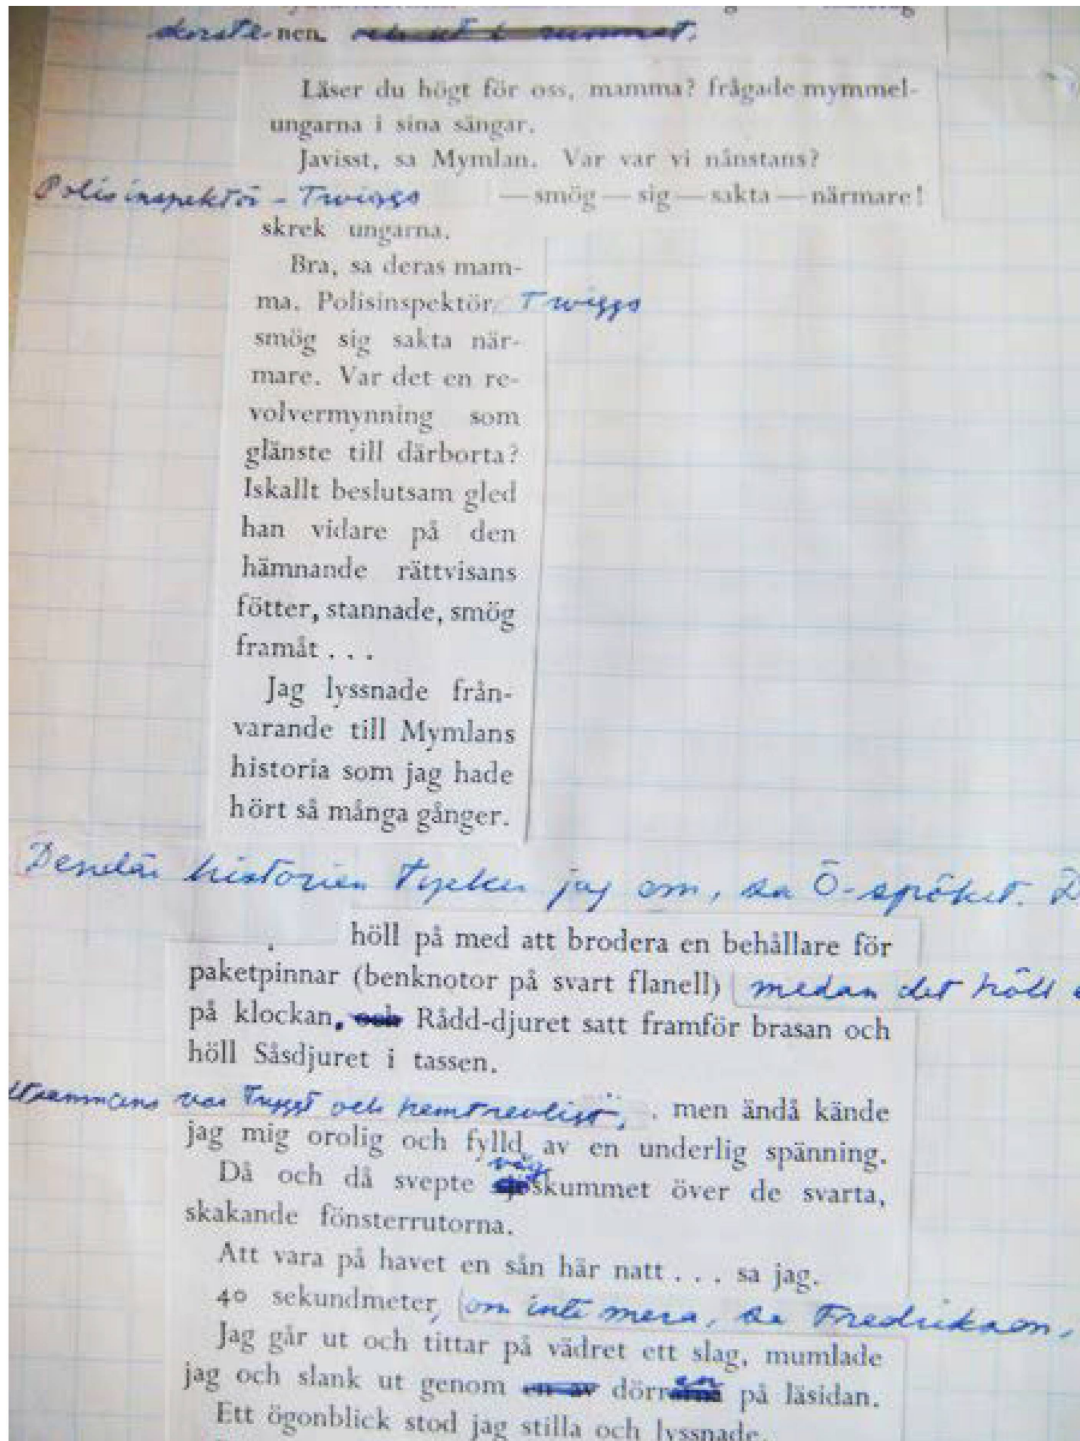 skorstenen. och ut i rummet.
Läser du högt för oss, mamma? frågade mymmel-
ungarna i sina sängar.
Javisst, sa Mymlan. Var var vi nånstans?
Polisinspektör – Twiggs — smög — sig — sakta — närmare!
skrek ungarna.
Bra, sa deras mam-
ma. Polisinspektör Twiggs
smög sig sakta när-
mare. Var det en re-
volvermynning som
glänste till därborta?
Iskallt beslutsam gled
han vidare på den
hämnande rättvisans
fötter, stannade, smög
framåt . . .
Jag lyssnade från-
varande till Mymlans
historia som jag hade
hört så många gånger.
Dendär historien tycker jag om, sa Ö-spöket. D
höll på med att brodera en behållare för
paketpinnar (benknotor på svart flanell) medan det höll
på klockan, och Rådd-djuret satt framför brasan och
höll Såsdjuret i tassen.
var tryggt och hemtrevligt, men ändå kände
jag mig orolig och fylld av en underlig spänning.
våg
Då och då svepte sjöskummet över de svarta,
skakande fönsterrutorna.
Att vara på havet en sån här natt . . . sa jag.
40 sekundmeter, om inte mera, sa Fredrikson.
Jag går ut och tittar på vädret ett slag, mumlade
jag och slank ut genom en av dörrarna på läsidan.
Ett ögonblick stod jag stilla och lyssnade.